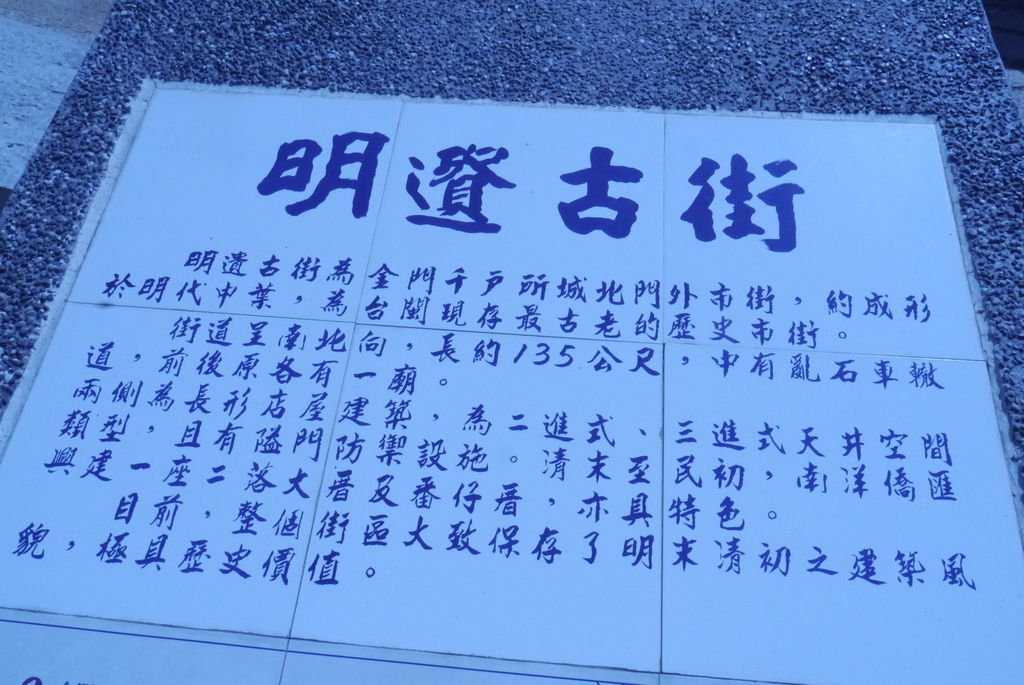 明遺古街
明遺古街為金門千戶所城北門外市街，約成形
於明代中葉，為台閩現存最古老的歷史市街。
街道呈南北向，長約135公尺，中有亂石車轍
道，前後原各有一廟。
兩側為長形店屋建築，為二進式、三進式天井空間
類型，且有隘門防禦設施。清末至民初，南洋僑匯
興建一座二落大厝及番仔厝，亦具特色。
目前，整個街區大致保存了明末清初之建築風
貌，極具歷史價值。